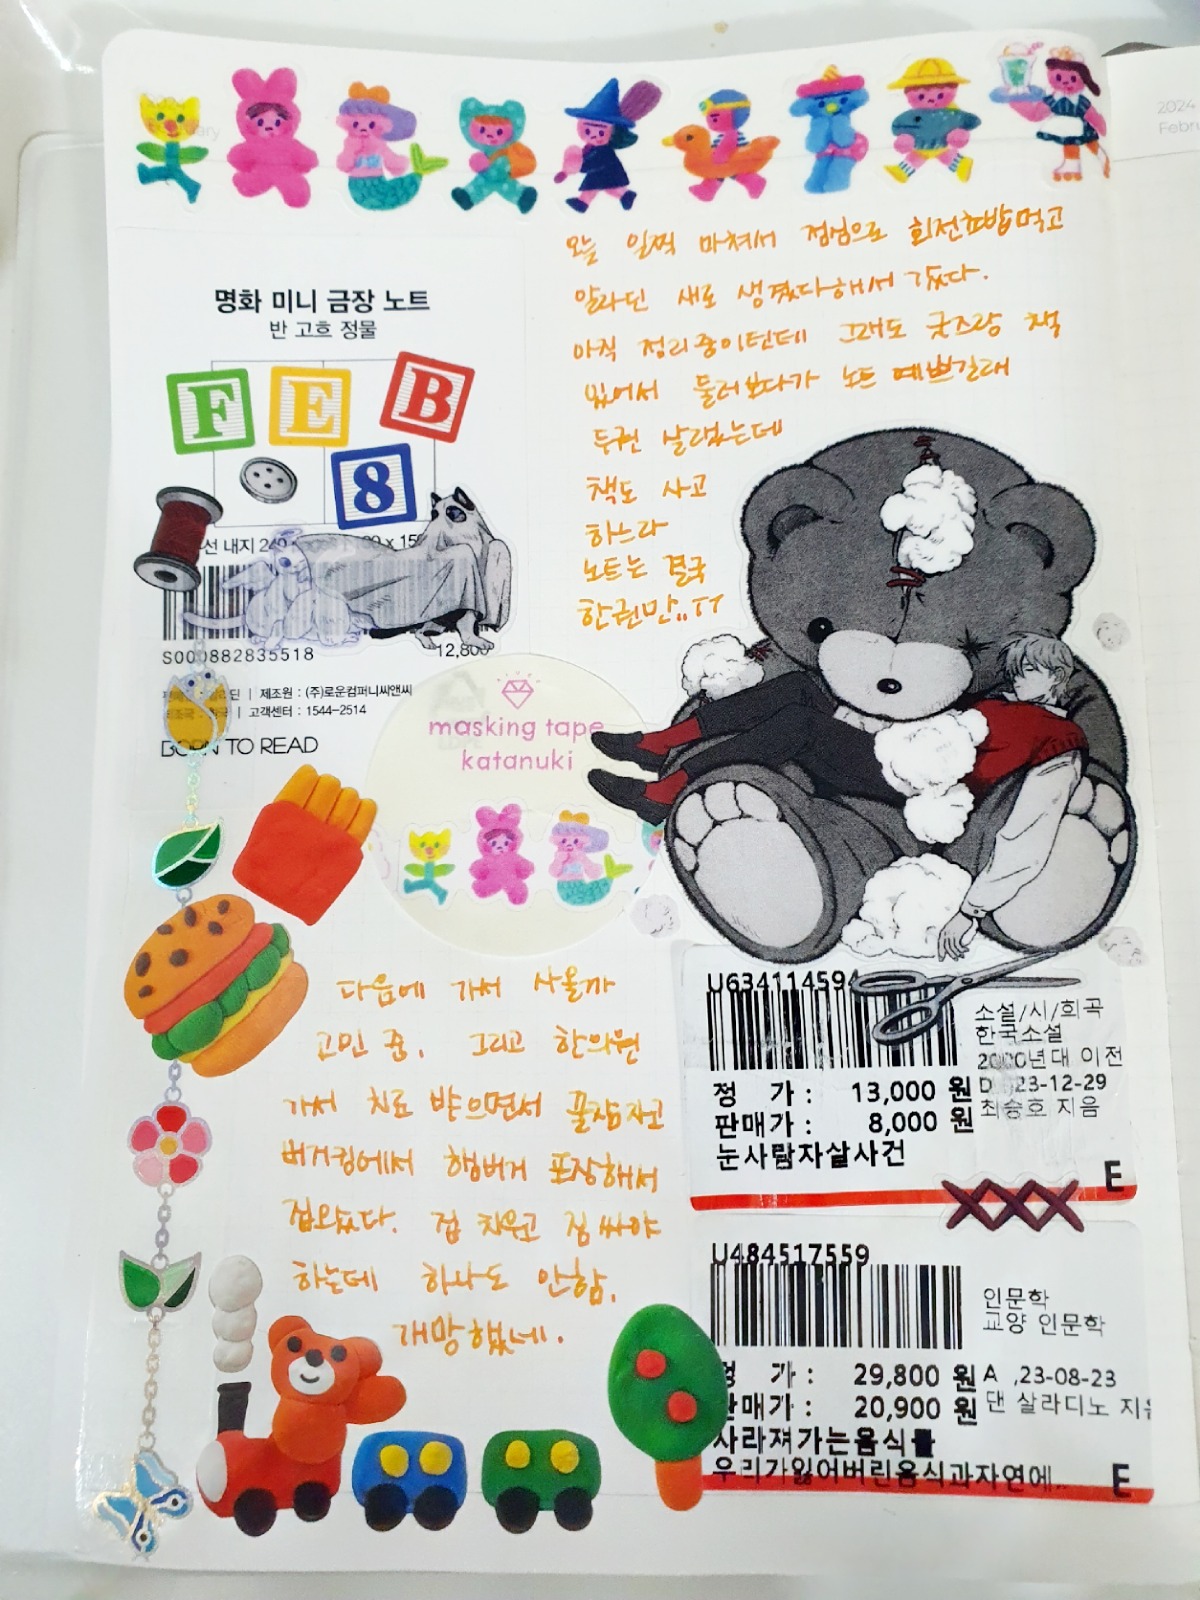 2024
오늘 일찍 마쳐서 점심으로 회전초밥먹고
알라딘 새로 생겼다해서 갔다.
아직 정리중이턴데 그래도 굿즈랑 책
있어서 둘러보다가 노트 예쁘길래
두권 살랬는데
책도 사고
하느라
노트는 결국
한권만..ㅠㅠ
명화 미니 금장 노트
반 고흐 정물
F E B
8
선 내지
S000882835518
12,800
제조원 : (주)로운컴퍼니씨앤씨
고객센터 : 1544-2514
BORN TO READ
masking tape
katanuki
다음에 가서 사올까
고민 중. 그리고 한의원
가서 치료 받으면서 꿀잠자고
버거킹에서 햄버거 포장해서
집왔다. 집 치우고 짐 싸야
하는데 하나도 안함.
개망했네.
U634114594
소설/시/희곡
한국소설
2000년대 이전
정 가 : 13,000 원
23-12-29
판매가 : 8,000 원
최승호 지음
눈사람자살사건
E
U484517559
인문학
교양 인문학
정 가 : 29,800 원
A ,23-08-23
판매가 : 20,900 원
댄 살라디노 지음
사라져가는음식들
우리가잃어버린음식과자연에..
E